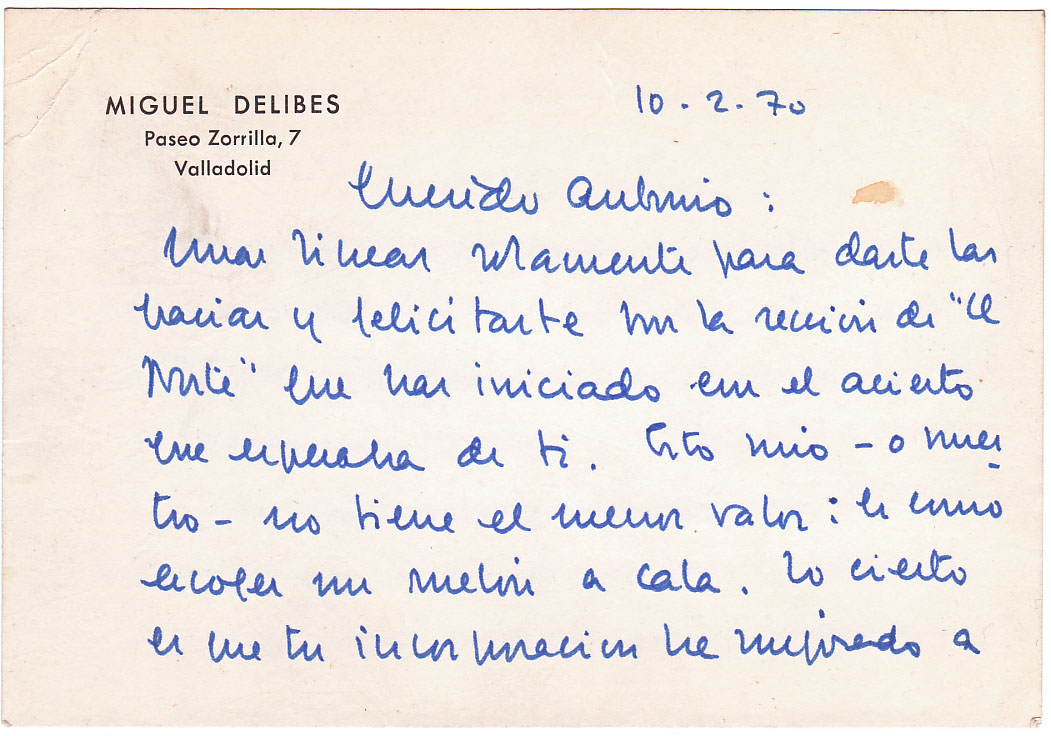 MIGUEL DELIBES
Paseo Zorrilla, 7
Valladolid
10-2-70
Querido Antonio:
Unas líneas solamente para darte las
gracias y felicitarte por la sección de "El
Norte" que has iniciado con el acierto
que esperaba de ti. Esto mío - o nues-
tro - no tiene el menor valor: es como
escoger un melón a cala. Lo cierto
es que tu incorporación ha mejorado a